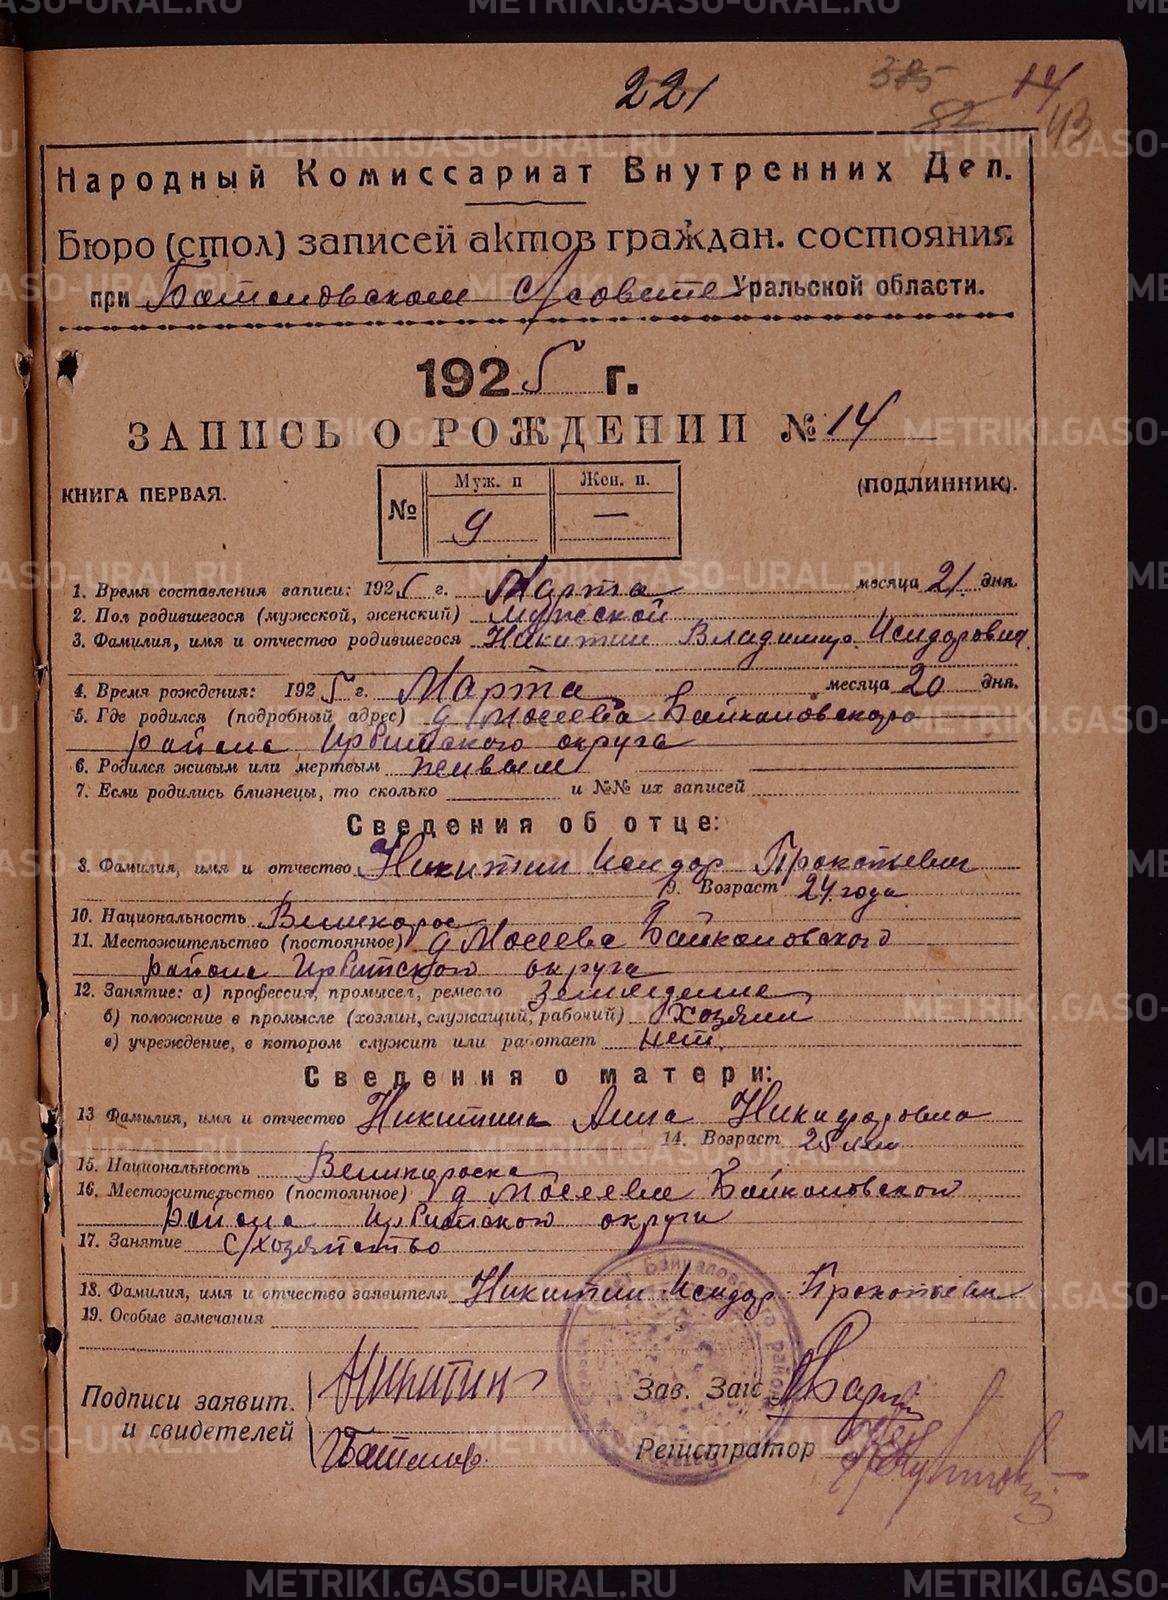 METRIKI.GASO-URAL.RU
221
385
82
14
43
Народный Комиссариат Внутренних Дел.
Бюро (стол) записей актов граждан. состояния
при С/совите Уральской области.
1925 г.
ЗАПИСЬ О РОЖДЕНИИ № 14
КНИГА ПЕРВАЯ.
№ Муж. п 9 Жен. п. —
(ПОДЛИННИК).
1. Время составления записи: 1925 г. Марта месяца 21 дня.
2. Пол родившегося (мужской, женский) мужской
3. Фамилия, имя и отчество родившегося Никитин Владимир Исидорович
4. Время рождения: 1925 г. Марта месяца 20 дня.
5. Где родился (подробный адрес) д Мосеева Байкаловского
района Ирбитского округа
6. Родился живым или мертвым живым
7. Если родились близнецы, то сколько и №№ их записей
Сведения об отце:
8. Фамилия, имя и отчество Никитин Исидор Прокопьевич
9. Возраст 24 года
10. Национальность Великорос
11. Местожительство (постоянное) д Мосеева Байкаловского
района Ирбитского округа
12. Занятие: а) профессия, промысел, ремесло земледелие
б) положение в промысле (хозяин, служащий, рабочий) хозяин
в) учреждение, в котором служит или работает нет.
Сведения о матери:
13 Фамилия, имя и отчество Никитина Анна Никифоровна
14. Возраст 25 лет
15. Национальность Великороска
16. Местожительство (постоянное) д Мосеева Байкаловского
района Ирбитского округа
17. Занятие с/хозяйство
18. Фамилия, имя и отчество заявителя Никитин Исидор Прокопьевич
19. Особые замечания
Подписи заявит.
и свидетелей
Никитин
Зав. Загс
Регистратор